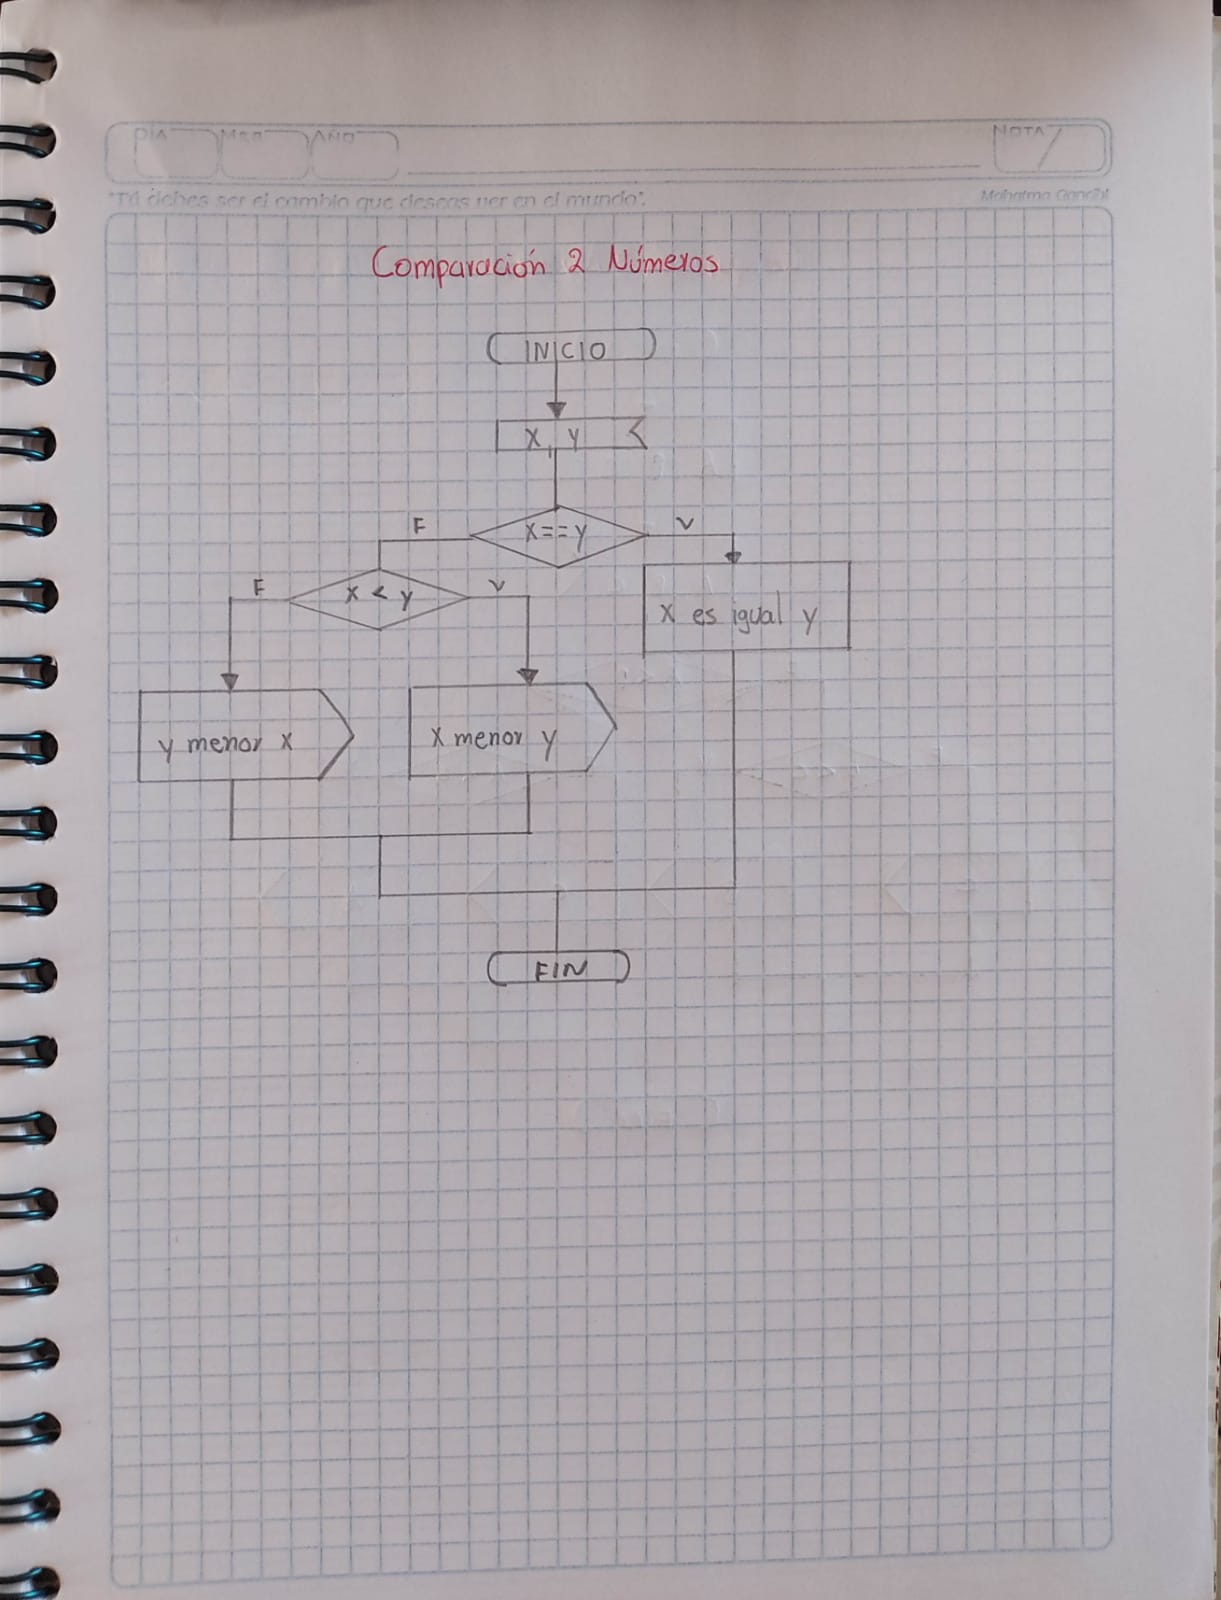 DÍA MES AÑO NOTA
"Tú debes ser el cambio que deseas ver en el mundo". Mahatma Gandhi
Comparación 2 Números
INICIO
X, Y
F X==Y V
F X < y V
X es igual y
y menor X
X menor y
FIN